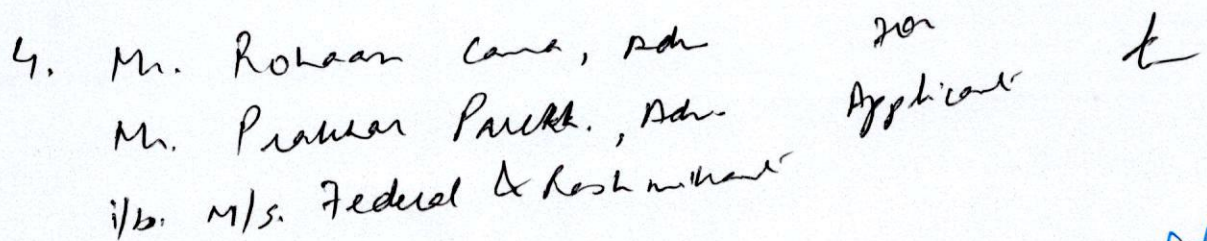 4. Mr. Rohaan Cama, Adv for
Mr. Prakhar Parekh., Adv. Applicant
i/b. M/s. Federal & Rashmikant